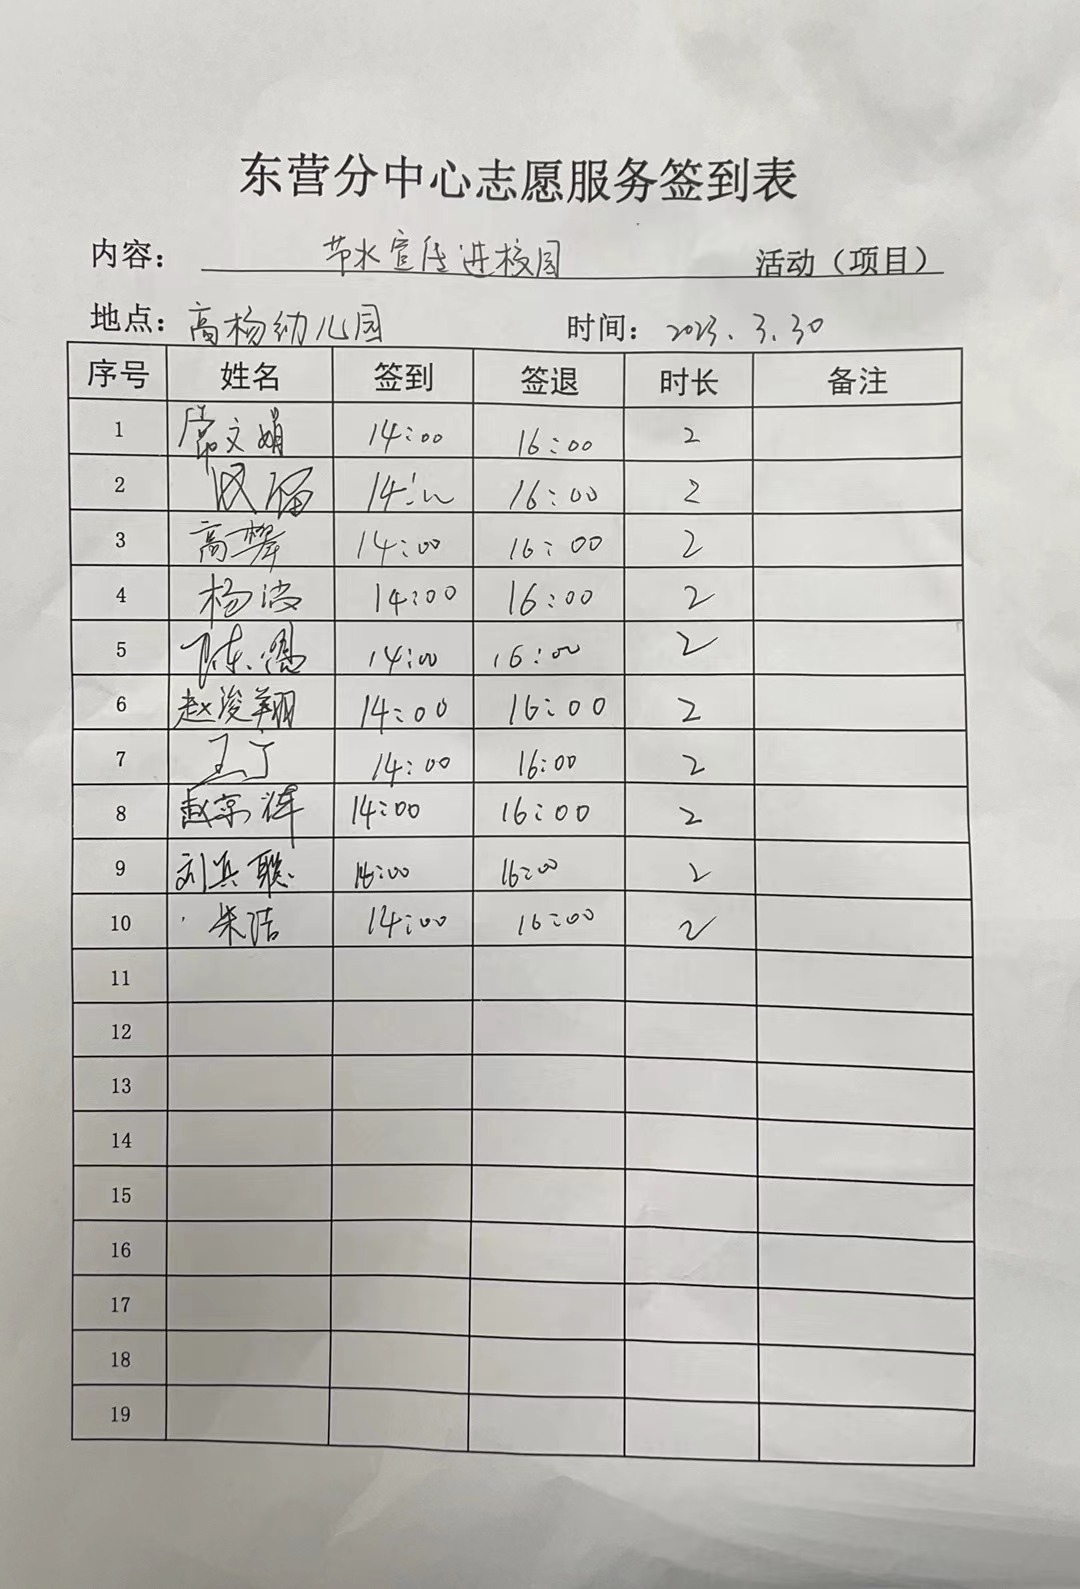 东营分中心志愿服务签到表
内容： 节水宣传进校园 活动（项目）
地点：高杨幼儿园 时间：2023.3.30
序号 姓名 签到 签退 时长 备注
1 常文娟 14:00 16:00 2
2 14:00 16:00 2
3 高攀 14:00 16:00 2
4 杨波 14:00 16:00 2
5 陈 14:00 16:00 2
6 赵浚翔 14:00 16:00 2
7 王丁 14:00 16:00 2
8 赵京祥 14:00 16:00 2
9 刘兵聪 14:00 16:00 2
10 朱洁 14:00 16:00 2
11
12
13
14
15
16
17
18
19